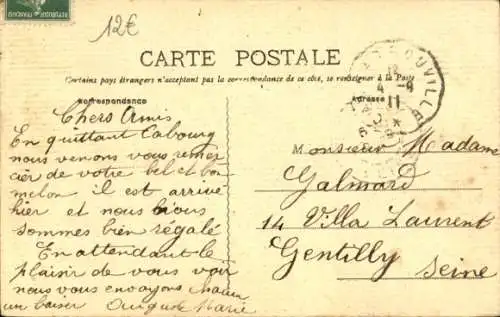 12€
CARTE POSTALE
Certains pays étrangers n'acceptent pas la correspondance de ce côté, se renseigner à la Poste
Correspondance
Adresse
Chers Amis
En quittant Cabourg
nous venons vous remer
cier de votre bel et bon
melon il est arrivé
hier et nous nous
sommes bien régalé
En attendant le
plaisir de vous voir
nous vous envoyons chacun
un baiser Marie
Monsieur Madame
Galmard
14 Villa Laurent
Gentilly
Seine
4 - 9
11